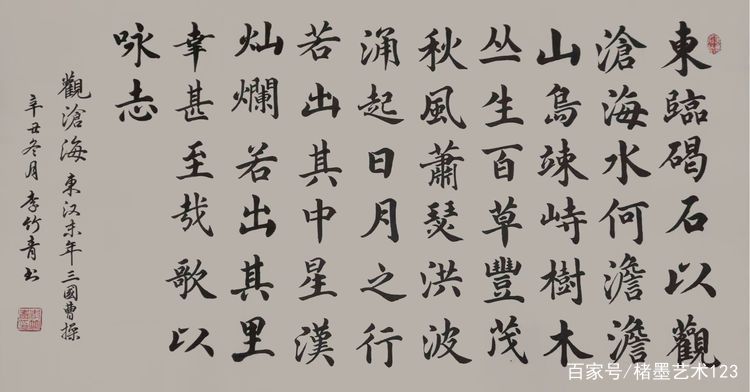 東臨碣石以觀
滄海水何澹澹
山島竦峙樹木
丛生百草豐茂
秋風蕭瑟洪波
涌起日月之行
若出其中星漢
灿爛若出其里
幸甚至哉歌以
咏志
觀滄海 東汉末年三國曹操
辛丑冬月李竹青书
百家号/楮墨艺术123